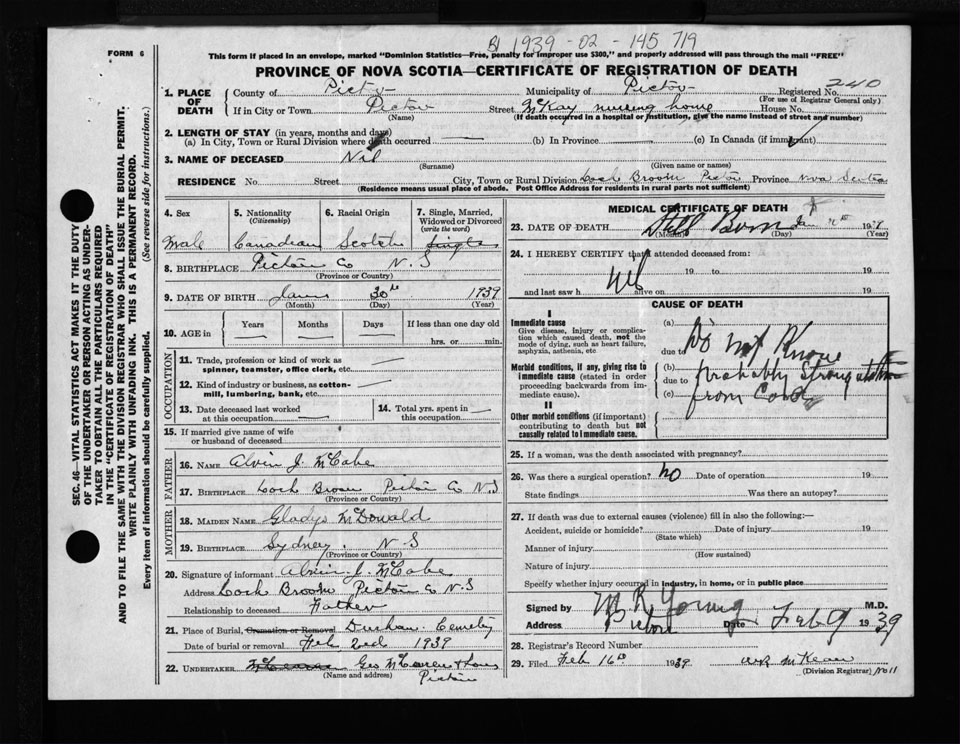 B1 1939 - 02 - 145 719
FORM 6
This form if placed in an envelope, marked "Dominion Statistics—Free, penalty for improper use $300," and properly addressed will pass through the mail "FREE"
PROVINCE OF NOVA SCOTIA—CERTIFICATE OF REGISTRATION OF DEATH
SEC. 46—VITAL STATISTICS ACT MAKES IT THE DUTY
OF THE UNDERTAKER OR PERSON ACTING AS UNDER-
TAKER TO OBTAIN ALL THE PARTICULARS REQUIRED
IN THE "CERTIFICATE OF REGISTRATION OF DEATH"
AND TO FILE THE SAME WITH THE DIVISION REGISTRAR WHO SHALL ISSUE THE BURIAL PERMIT.
WRITE PLAINLY WITH UNFADING INK. THIS IS A PERMANENT RECORD.
Every item of information should be carefully supplied. (See reverse side for instructions.)
1. PLACE OF DEATH
County of Pictou Municipality of Pictou Registered No. 240
(For use of Registrar General only)
If in City or Town Pictou Street McKay nursing home House No.
(Name) (If death occurred in a hospital or institution, give the name instead of street and number)
2. LENGTH OF STAY (in years, months and days)
(a) In City, Town or Rural Division where death occurred — (b) In Province (c) In Canada (if immigrant)
3. NAME OF DECEASED Nil
(Surname) (Given name or names)
RESIDENCE No. Street City, Town or Rural Division Loch Broom Pictou Province Nova Scotia
(Residence means usual place of abode. Post Office Address for residents in rural parts not sufficient)
4. Sex
Male
5. Nationality
(Citizenship)
Canadian
6. Racial Origin
Scotch
7. Single, Married,
Widowed or Divorced
(write the word)
Single
8. BIRTHPLACE Pictou Co N.S
(Province or Country)
9. DATE OF BIRTH 30th 1939
(Month) (Day) (Year)
10. AGE in Years Months Days If less than one day old
hrs. or min.
OCCUPATION
11. Trade, profession or kind of work as
spinner, teamster, office clerk, etc.
12. Kind of industry or business, as cotton-
mill, lumbering, bank, etc.
13. Date deceased last worked
at this occupation
14. Total yrs. spent in
this occupation
15. If married give name of wife
or husband of deceased
FATHER
16. NAME Alvin J. McCabe
17. BIRTHPLACE Loch Broom Pictou Co N.S
(Province or Country)
MOTHER
18. MAIDEN NAME Gladys McDonald
19. BIRTHPLACE Sydney. N.S
(Province or Country)
20. Signature of informant Alvin J. McCabe
Address Loch Broom Pictou Co N.S
Relationship to deceased Father
21. Place of Burial, Cremation or Removal Durham Cemetry
Date of burial or removal Feb 2nd 1939
22. UNDERTAKER Geo McLaren & Sons
(Name and address) Pictou
MEDICAL CERTIFICATE OF DEATH
23. DATE OF DEATH Still Born Jan
(Month) (Day) (Year)
24. I HEREBY CERTIFY that I attended deceased from:
19 to 19
and last saw h alive on 19
CAUSE OF DEATH
I
Immediate cause
Give disease, injury or complica-
tion which caused death, not the
mode of dying, such as heart failure,
asphyxia, asthenia, etc
Morbid conditions, if any, giving rise to
immediate cause (stated in order
proceeding backwards from im-
mediate cause).
II
Other morbid conditions (if important)
contributing to death but not
causally related to immediate cause.
(a)
due to Do not Know
(b)
due to Probably Strangulation
(c) from Cord
25. If a woman, was the death associated with pregnancy?
26. Was there a surgical operation? No Date of operation 19
State findings Was there an autopsy?
27. If death was due to external causes (violence) fill in also the following:—
Accident, suicide or homicide? Date of injury 19
(State which)
Manner of injury
(How sustained)
Nature of injury
Specify whether injury occurred in industry, in home, or in public place
Signed by M R Young M.D.
Address Pictou Date Feb 9 1939
28. Registrar's Record Number
29. Filed Feb 16th 1939 McKean
(Division Registrar) No 11